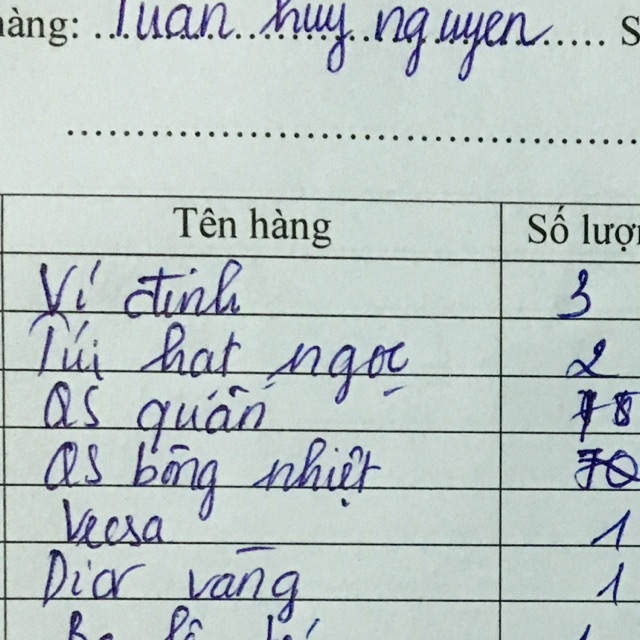 hàng: Tuan huy nguyen S
Tên hàng Số lượn
Ví đính 3
Túi hat ngọc 2
QS quấn 18
QS bông nhiệt 70
Vecsa 1
Dior vāng 1